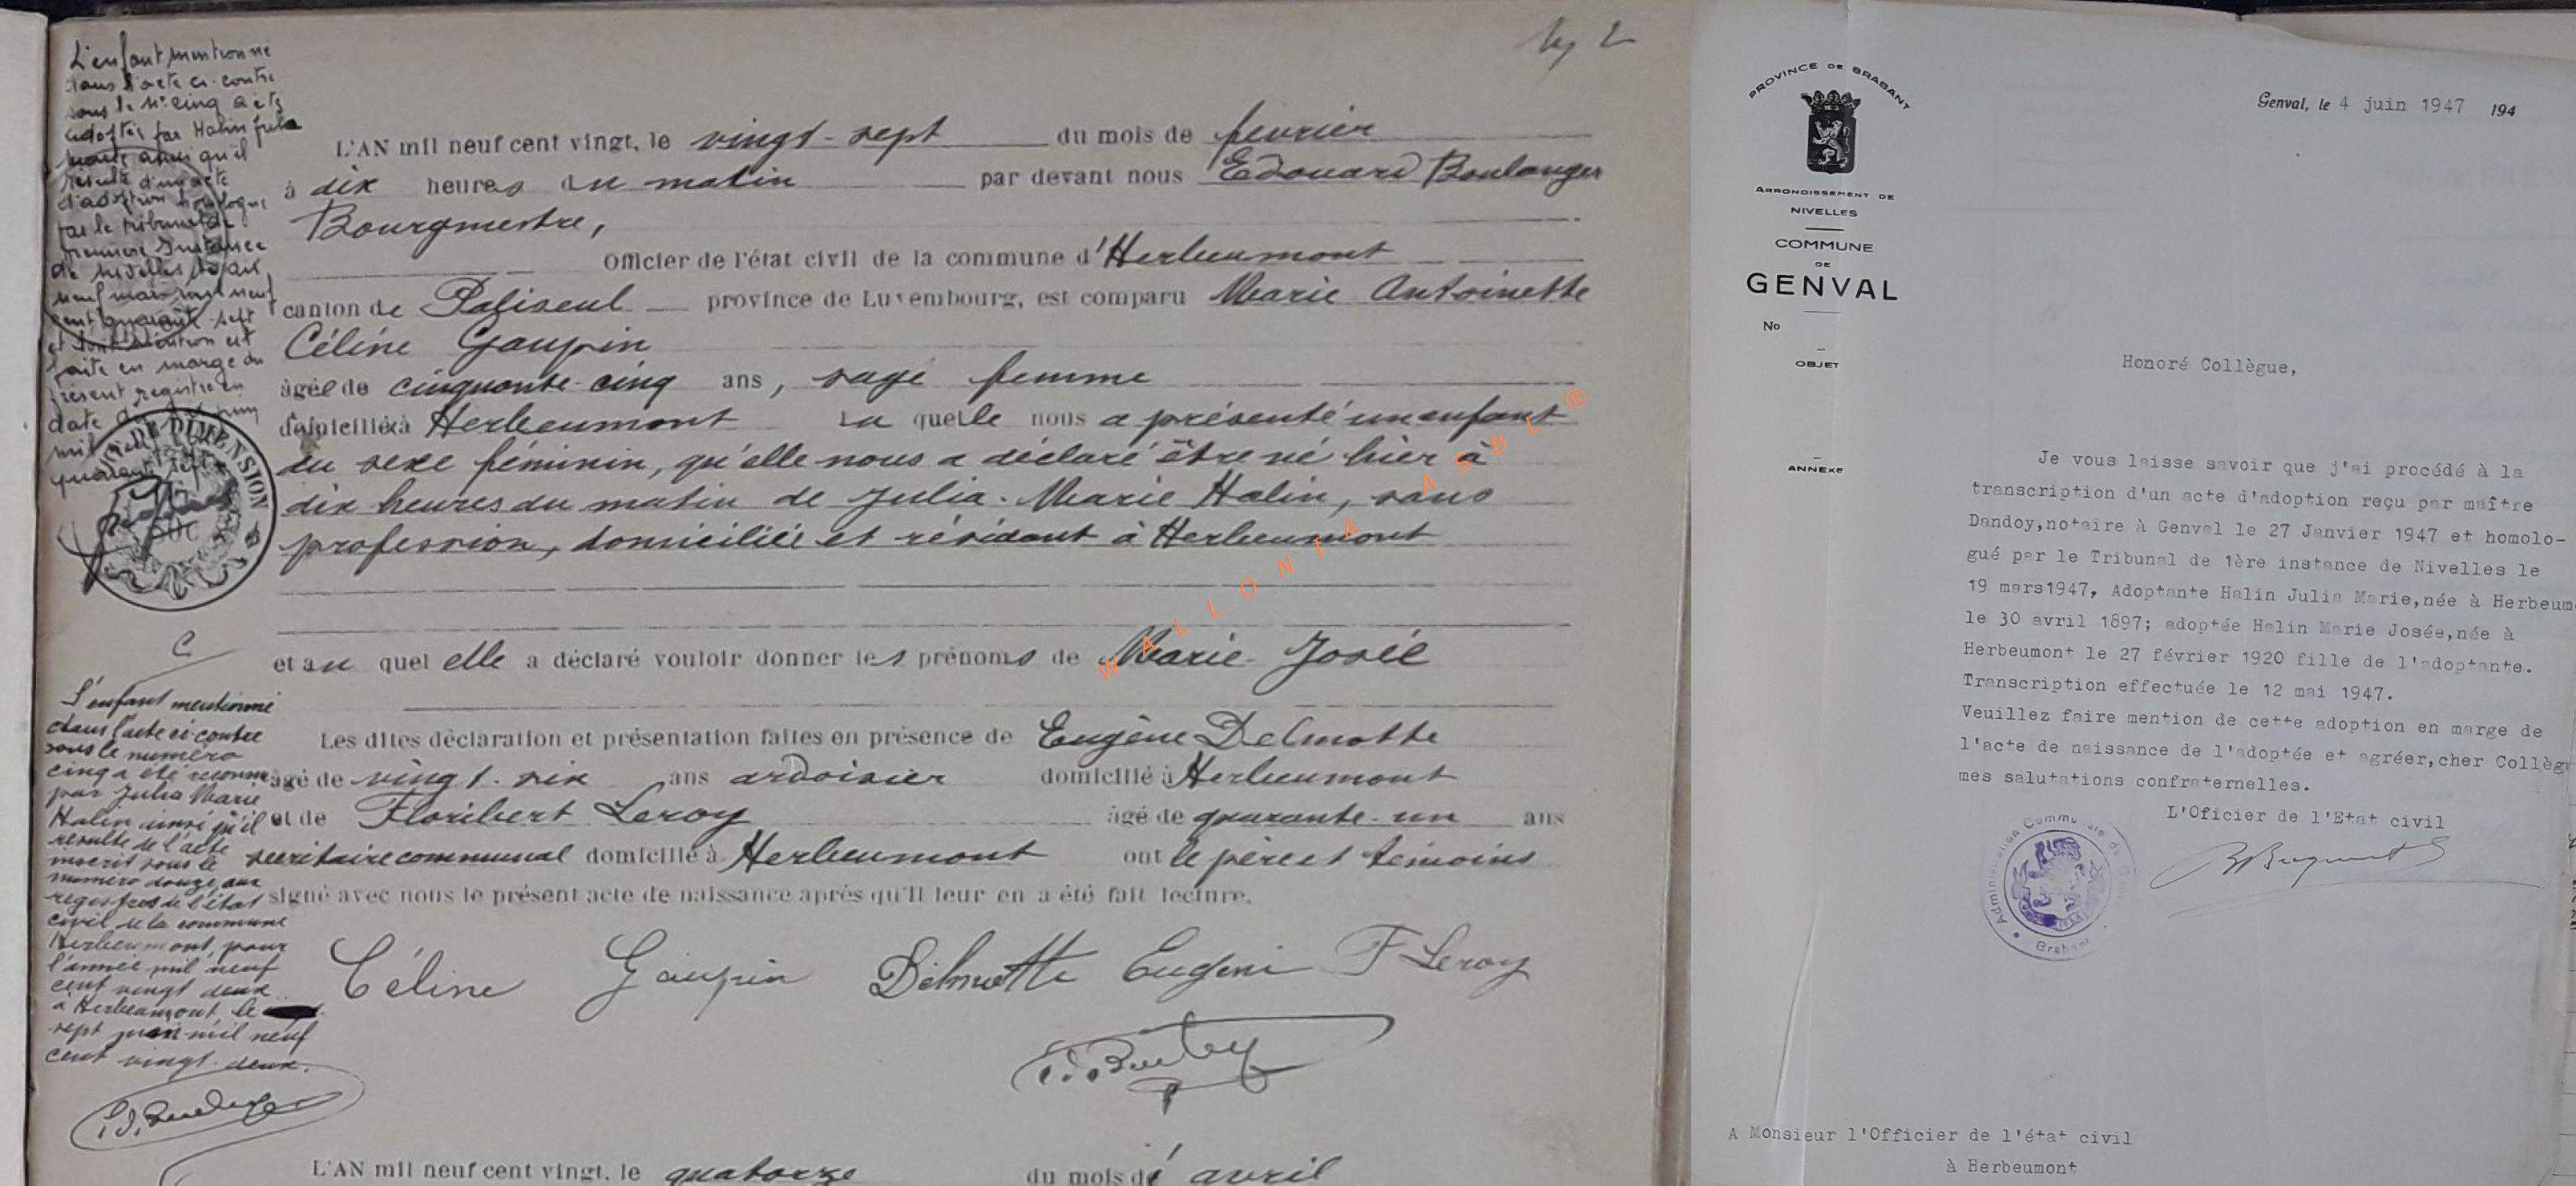 L'enfant mentionné
dans l'acte ci-contre
sous le n° cinq a été
adopté par Halin Julia
Marie ainsi qu'il
résulte d'un acte
d'adoption homologué
par le tribunal de
première Instance
de Nivelles le
neuf mars mil neuf
cent quarante-sept
et dont mention est
faite en marge du
présent registre en
date du six juin
mil neuf cent
quarante sept
DE DIMENSION
C
L'enfant mentionné
dans l'acte ci-contre
sous le numéro
cinq a été reconnu
par Julia Marie
Halin ainsi qu'il
résulte de l'acte
inscrit sous le
numéro douze, aux
registres de l'état
civil de la commune
Herbeumont, pour
l'année mil neuf
cent vingt deux
à Herbeumont, le
sept juin mil neuf
cent vingt-deux.
L'AN mil neuf cent vingt, le vingt-sept du mois de février
à dix heures du matin par devant nous Edouard Boulanger
Bourgmestre,
Officier de l'état civil de la commune d'Herbeumont
canton de Paliseul province de Luxembourg, est comparu Marie Antoinette
Céline Gaupin
âgée de cinquante-cinq ans, sage femme
domiciliée à Herbeumont la quelle nous a présenté un enfant
du sexe féminin, qu'elle nous a déclaré être né hier à
dix heures du matin de Julia-Marie Halin, sans
profession, domiciliée et résidant à Herbeumont
et au quel elle a déclaré vouloir donner les prénoms de Marie-Josée
Les dites déclaration et présentation faites en présence de Eugène Delmotte
âgé de vingt-six ans ardoisier domicilié à Herbeumont
et de Floribert Leroy âgé de quarante-un ans
secrétaire communal domicilié à Herbeumont ont le père et témoins
signé avec nous le présent acte de naissance après qu'il leur en a été fait lecture.
Céline Gaupin Delmotte Eugène F Leroy
L'AN mil neuf cent vingt, le quatorze du mois d' avril
WALLONIA ASBL ®
PROVINCE DE BRABANT
ARRONDISSEMENT DE
NIVELLES
COMMUNE
DE
GENVAL
No
OBJET
ANNEXE
Genval, le 4 juin 1947 194
Honoré Collègue,
Je vous laisse savoir que j'ai procédé à la
transcription d'un acte d'adoption reçu par maître
Dandoy,notaire à Genval le 27 Janvier 1947 et homolo-
gué par le Tribunal de 1ère instance de Nivelles le
19 mars1947, Adoptante Halin Julia Marie,née à Herbeum
le 30 avril 1897; adoptée Halin Marie Josée,née à
Herbeumont le 27 février 1920 fille de l'adoptante.
Transcription effectuée le 12 mai 1947.
Veuillez faire mention de cette adoption en marge de
l'acte de naissance de l'adoptée et agréer,cher Collèg
mes salutations confraternelles.
L'Oficier de l'Etat civil
Administration Communale de Genval
Brabant
A Monsieur l'Officier de l'état civil
à Herbeumont